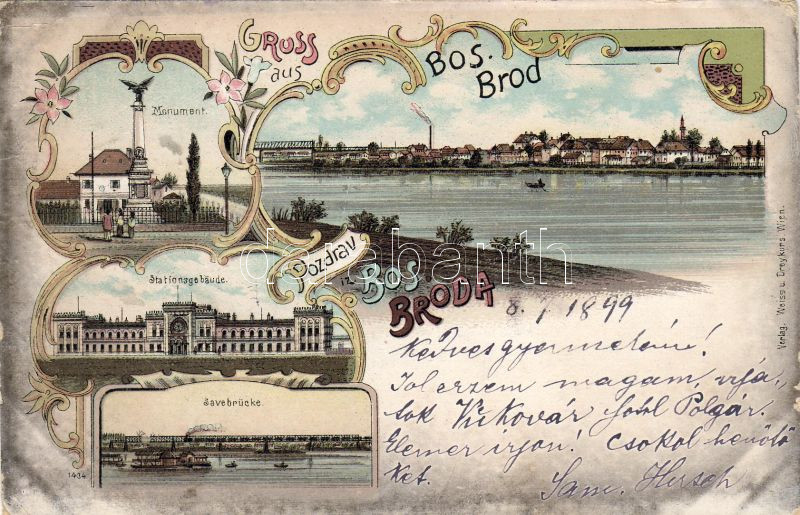 Gruss
aus
Bos.
Brod
Monument.
Pozdrav
iz Bos
Broda
Stationsgebäude.
Savebrücke.
1434
Verlag. Weiss u. Dreykurs. Wien.
darabanth
8. / 1899
Kedves gyermekeim!
Jol erzem magam, irja,
tok Vukovár Polgár.
Elemer irjon! Csokol
Sam. Hirsch